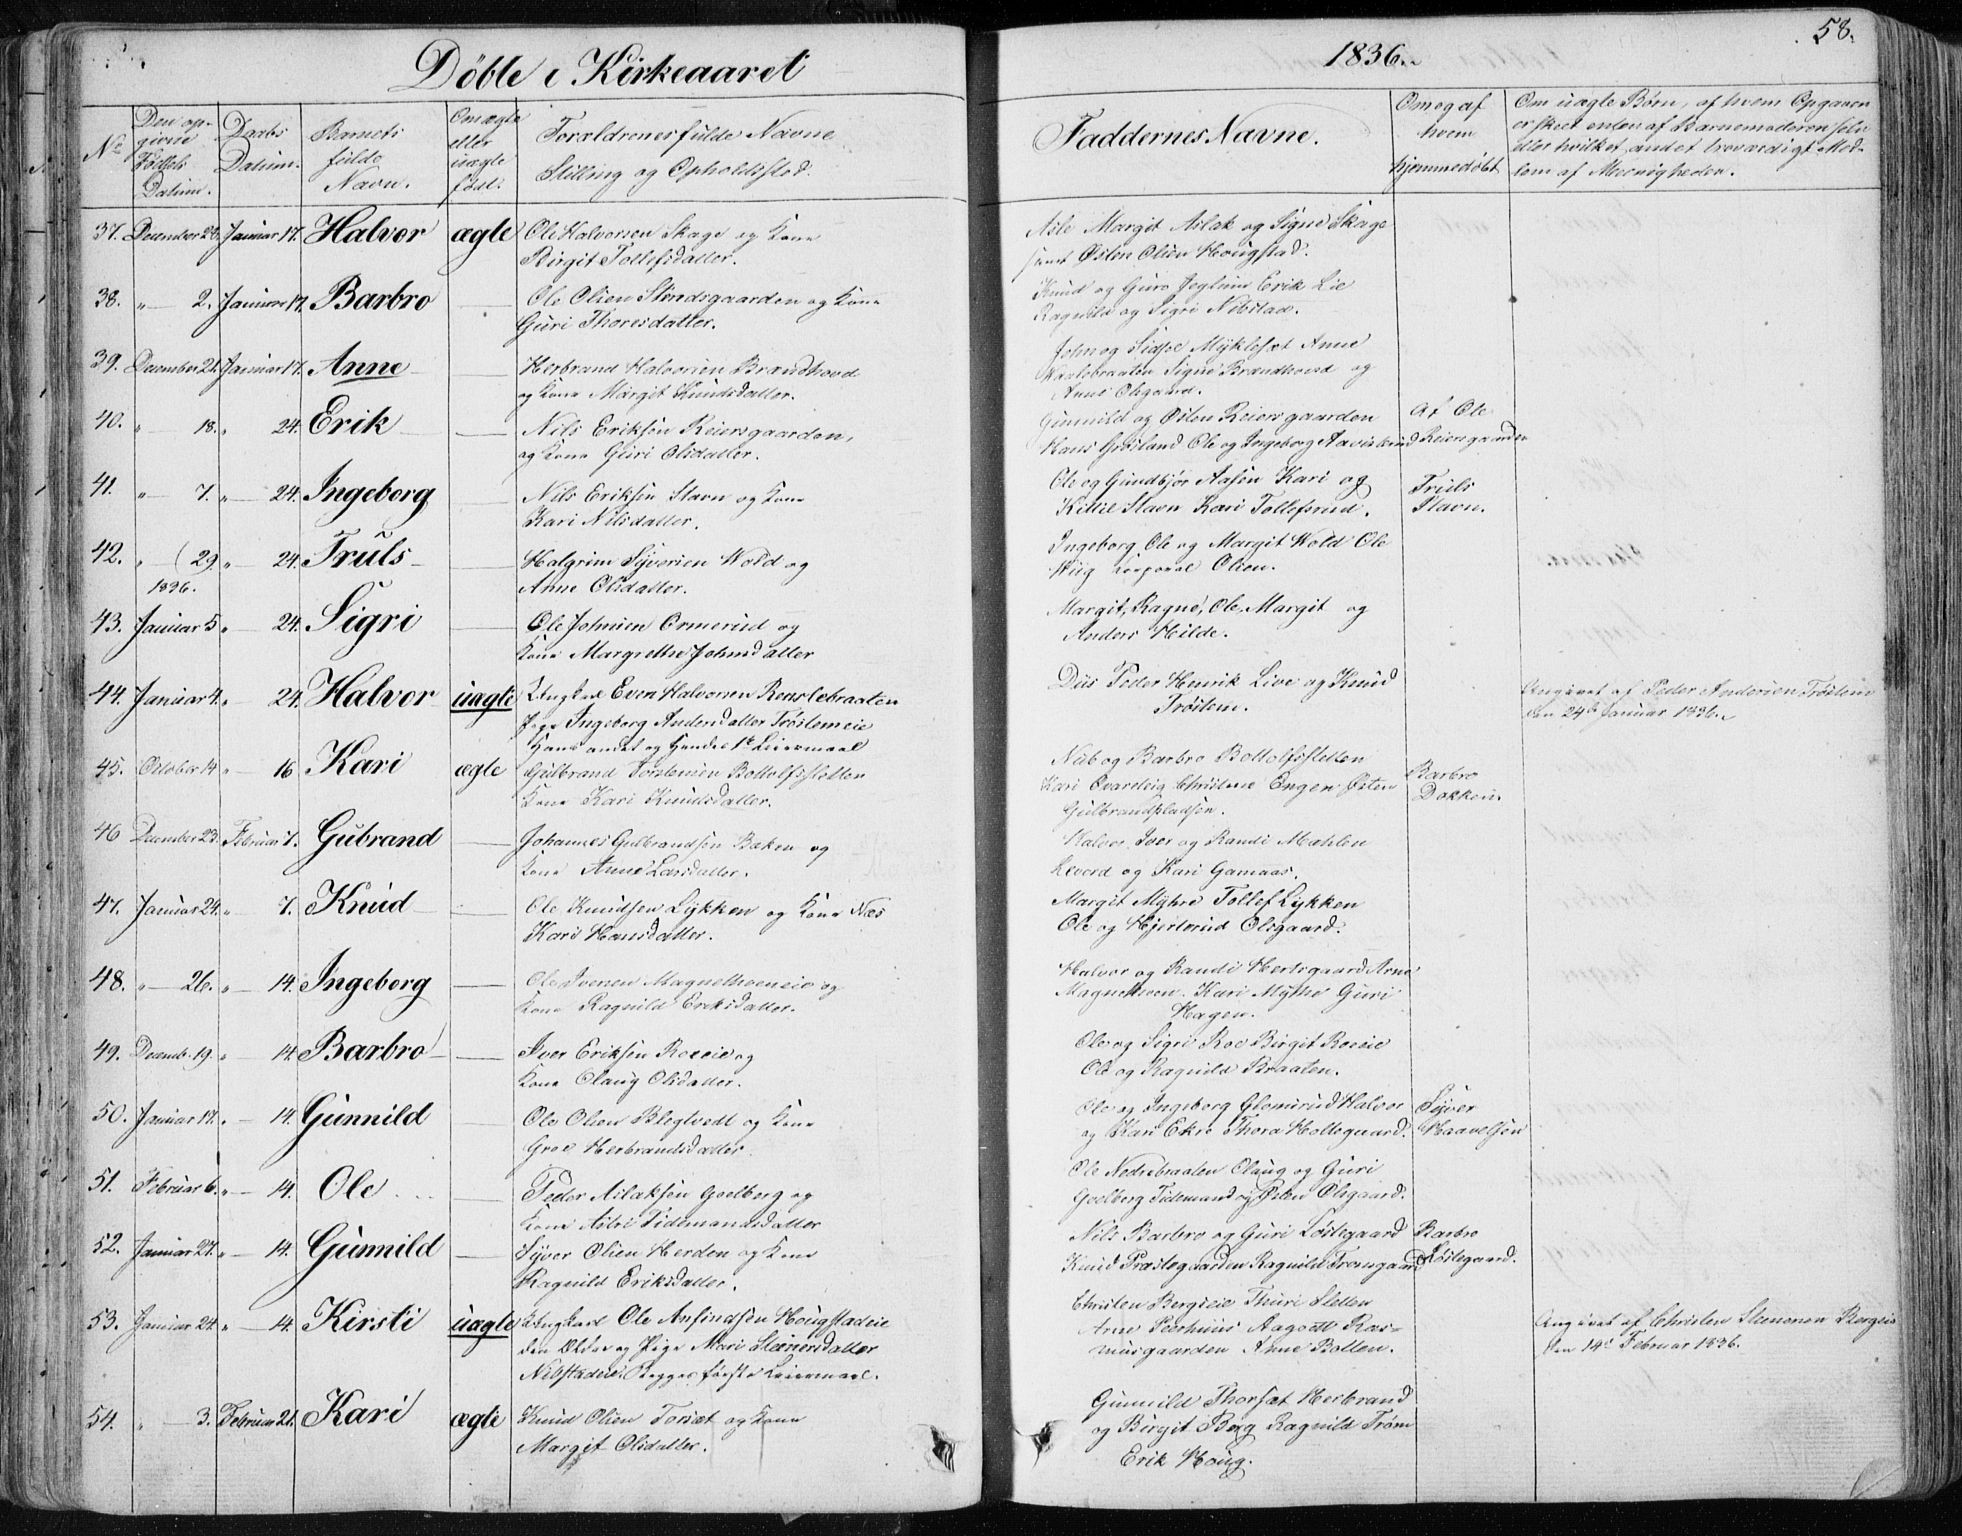 Döbte i Kirkeaaret
1836.
58.
No
Den op-
givne
Födsels
Datum.
Daabs
Datum.
Barnets
fulde
Navn.
Om ægte
eller
uægte
født.
Forældrenes fulde Navne
Stilling og Opholdssted.
Faddernes Navne.
Om og af
hvem
hjemmedöbt
Om uægte Børn, af hvem Opgaven
er skeet enten af Barnemoderen selv
eller hvilket andet troværdigt Med-
lem af Menigheden.
37. December 28. Januar 17. Halvor ægte Ole Halvorsen Skage og Kone
Birgit Tollefsdatter.
Asle Margit Aslak og Signe Skage
samt Østen Olsen Hougstad.
38. " 2. Januar 17. Barbro — Ole Olsen Strndsgaarden og Kone
Guri Thoresdatter.
Knud og Guro Jeglum Erik Lie
Ragnild og Sigri Nibstad.
39. December 21. Januar 17. Anne — Herbrand Halvorsen Brændhoved
og Kone Margit Knudsdatter.
John og Sidsel Myklesæt Anne
Signe Brændhovd og
Anne Olsgaard.
40. " 18. " 24. Erik — Nils Eriksøn Reiersgaarden,
og Kone Guri Olsdatter.
Gunnild og Østen Reiersgaarden
Hans Grøsland Ole og Ingeborg Aavestrud
Af Ole
Reiersgaarden
41. " 7. " 24. Ingeborg — Nils Eriksøn Stavn og Kone
Kari Nilsdatter.
Ole og Gundbjør Aasen Kari og
Kittil Stavn Kari Tollefsrud.
Truls
Stavn.
42. " 29. " 24. Truls — Halgrim Syversen Wold og
Anne Olsdatter.
Ingeborg Ole og Margit Wold Ole
Wiig Korporal Olsen.
1836.
43. Januar 5 " 24. Sigri — Ole Johnsen Ormerud og
Kone Margrethe Johnsdatter
Margit, Ragne, Ole, Margit og
Anders Hilde.
44. Januar 4. " 24. Halvor uægte Ungkarl Even Halvorsen Renslebraaten
Pige Ingeborg Andersdatter Trøstemeie
Hans andet og Hendes 1te Leiermaal
Diis Peder Henrik Live og Knud
Trøstem.
Angivet af Peder Andersen Trøstem
den 24de Januar 1836.
45. October 14 " 16 Kari ægte Gulbrand Torstensen Bottolfssletten
Kone Kari Knudsdatter.
Nub og Barbro Bottolfssletten
Kari Evardeig Christene Engen Østen
Gulbrandspladsen.
Barbro
Dokken.
46 December 23. Februar 7. Gubrand — Johannes Gulbrandsøn Baken og
Kone Anne Larsdatter.
Halvor Iver og Randi Mæhlen
Levord og Kari Gamaas.
47. Januar 24. " 7. Knud — Ole Knudsen Lykken og Kone Næs
Kari Hansdatter.
Margit Myhre Tollef Lykken
Ole og Hjertrud Olsgaard.
48. " 26. " 14. Ingeborg — Ole Iversen Magnethoeneie og
Kone Ragnild Eriksdatter.
Halvor og Randi Hertsgaard Arne
Magnethoen. Kari Myhre Guri
Hagen.
49. Decemb. 19. " 14. Barbro — Iver Eriksøn Roeeie og
Kone Olaug Olsdatter.
Ole og Sigri Roe Birgit Roeeie
Ole og Ragnild Braaten.
50. Januar 17. " 14. Gunnild — Ole Olsen Blegtvedt og Kone
Groe Herbrandsdatter.
Ole og Ingeborg Glomsrud Halvor
og Kari Ekre Thora Hollegaard.
Syver
Haavelsøn
51. Februar 6. " 14. Ole — Peder Aslaksøn Goelberg og
Kone Astri Tidemandsdatter
Ole Nedrebraaten Olaug og Guri
Goelberg Tidemand og Østen Olsgaard.
52. Januar 27. " 14. Gunnild — Syver Olsen Herden og Kone
Ragnild Eriksdatter.
Nils Barbro og Guri Løstegaard
Knud Præstegaarden Ragnild Tromsgaard
Barbro
Løstegaard.
53. Januar 24. " 14. Kirsti uægte Ungkarl Ole Anfindsøn Hougstadeie
den Ældre og Pige Mari Steinersdatter
Nibstadeie. Begges første Leiermaal.
Christen Bergseie Thuri Sletten
Arne Peerhuus Aagoth Ras-
musgaarden Anne Bolten.
Angivet af Christen Steenersen Bergeie
den 14de Februar 1836.
54. " 3. Februar 21. Kari ægte Knud Olsen Torsæt og Kone
Margit Olsdatter.
Gunnild Thorsæt Herbrand
og Birgit Berg Ragnild Trøm
Erik Houg.